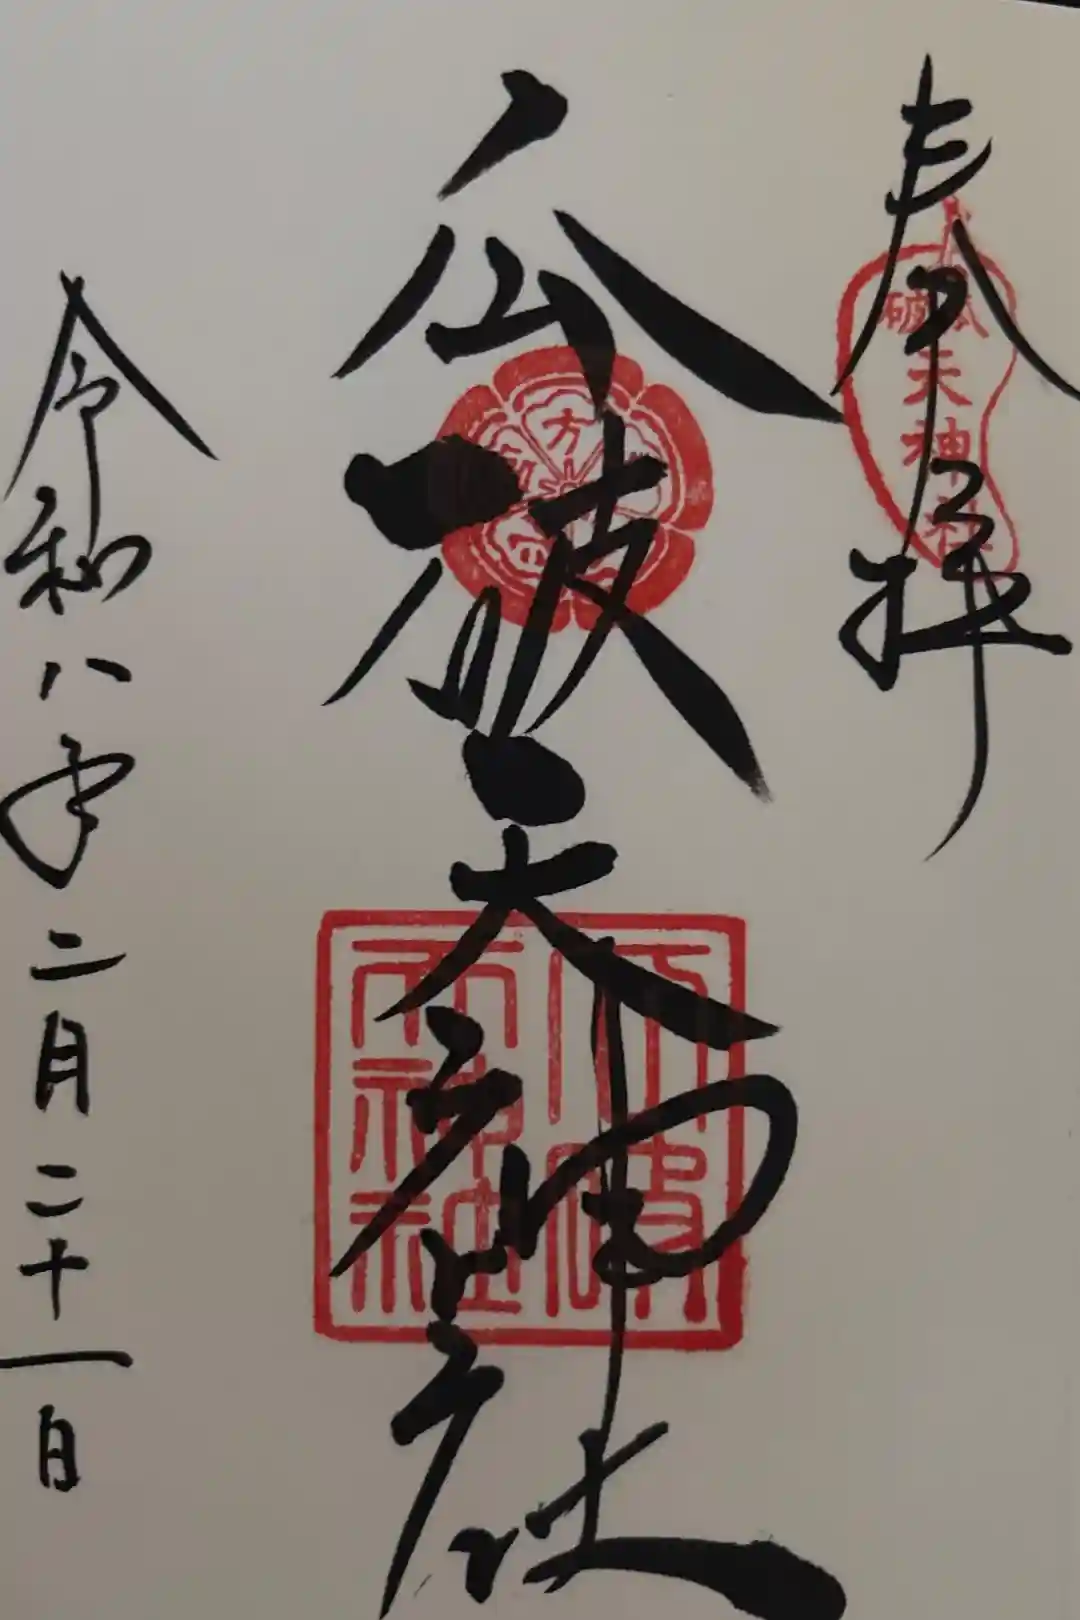 奉拝
瓜破天神社
瓜破天神社
方
瓜破天神社
令和八年二月二十一日